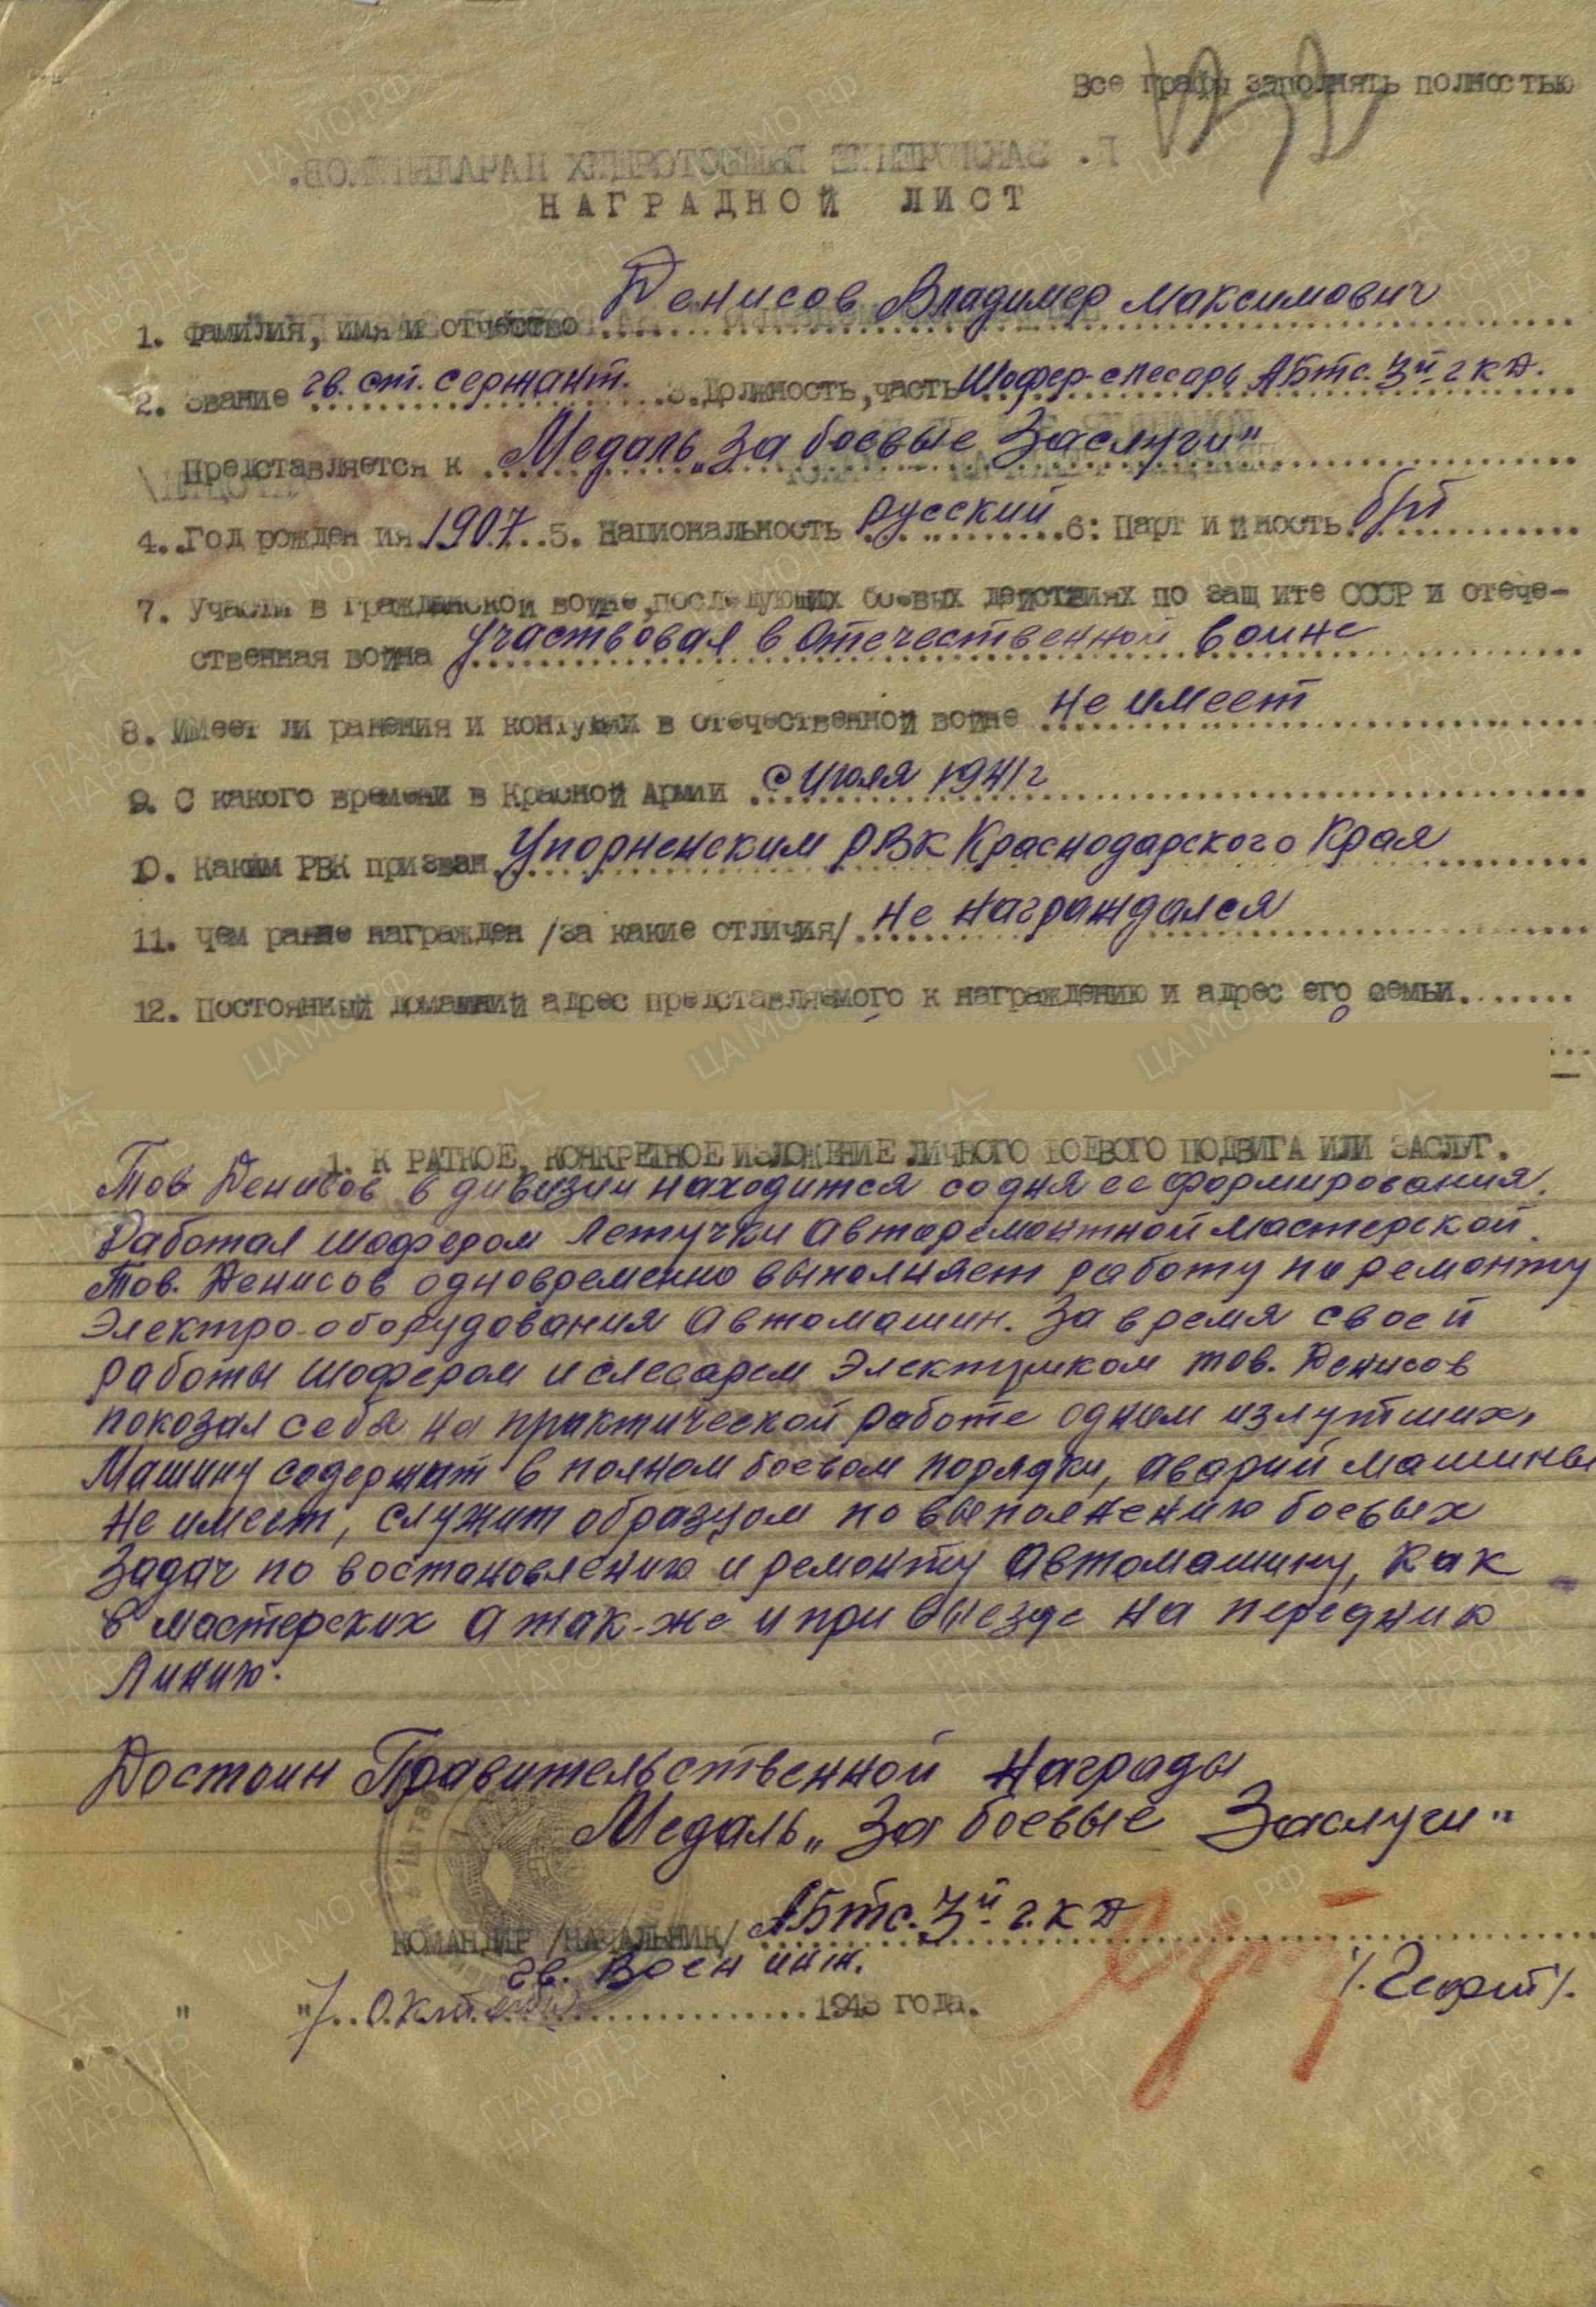 Все графы заполнять полностью
НАГРАДНОЙ ЛИСТ
1. Фамилия, имя и отчество Денисов Владимер Максимович
2. Звание гв. ст. сержант. 3. Должность, часть Шофер-слесарь АБтс. 3й г К Д.
Представляется к Медаль „За боевые Заслуги"
4. Год рождения 1907 5. Национальность русский 6: Партийность б/п
7. Участие в гражданской войне, последующих боевых действиях по защите СССР и отече-
ственная война Участвовал в Отечественной воине
8. Имеет ли ранения и контузии в отечественной войне Не имеет
9. С какого времени в Красной Армии с Июля 1941 г
10. Каким РВК призван Упорненским РВК Краснодарского Края
11. чем ранее награжден /за какие отличия/ Не награждался
12. Постоянный домашний адрес представляемого к награждению и адрес его семьи.
1. КРАТКОЕ, КОНКРЕТНОЕ ИЗЛОЖЕНИЕ ЛИЧНОГО БОЕВОГО ПОДВИГА ИЛИ ЗАСЛУГ.
Тов Денисов в дивизии находится со дня ее формирования.
Работал шофером Летучки Авторемонтной мастерской.
Тов. Денисов одновременно выполняет работу по ремонту
Электро-оборудования Автомашин. За время своей
работы шофером и слесарем Электриком тов. Денисов
показал себя на практической работе одним из лутших,
Машину содержит в полном боевом порядки, аварий машины
Не имеет, служит образцом по выполнению боевых
Задач по востановлению и ремонту Автомашину, как
в мастерских а так-же и при выезде на переднию
Линию.
Достоин Правительственной Награды
Медаль „За боевые Заслуги"
КОМАНДИР /НАЧАЛЬНИК/ АБтс. 3й г. К Д
гв. Воен инж. /. Гефт/.
" "7 октября 1943 года.